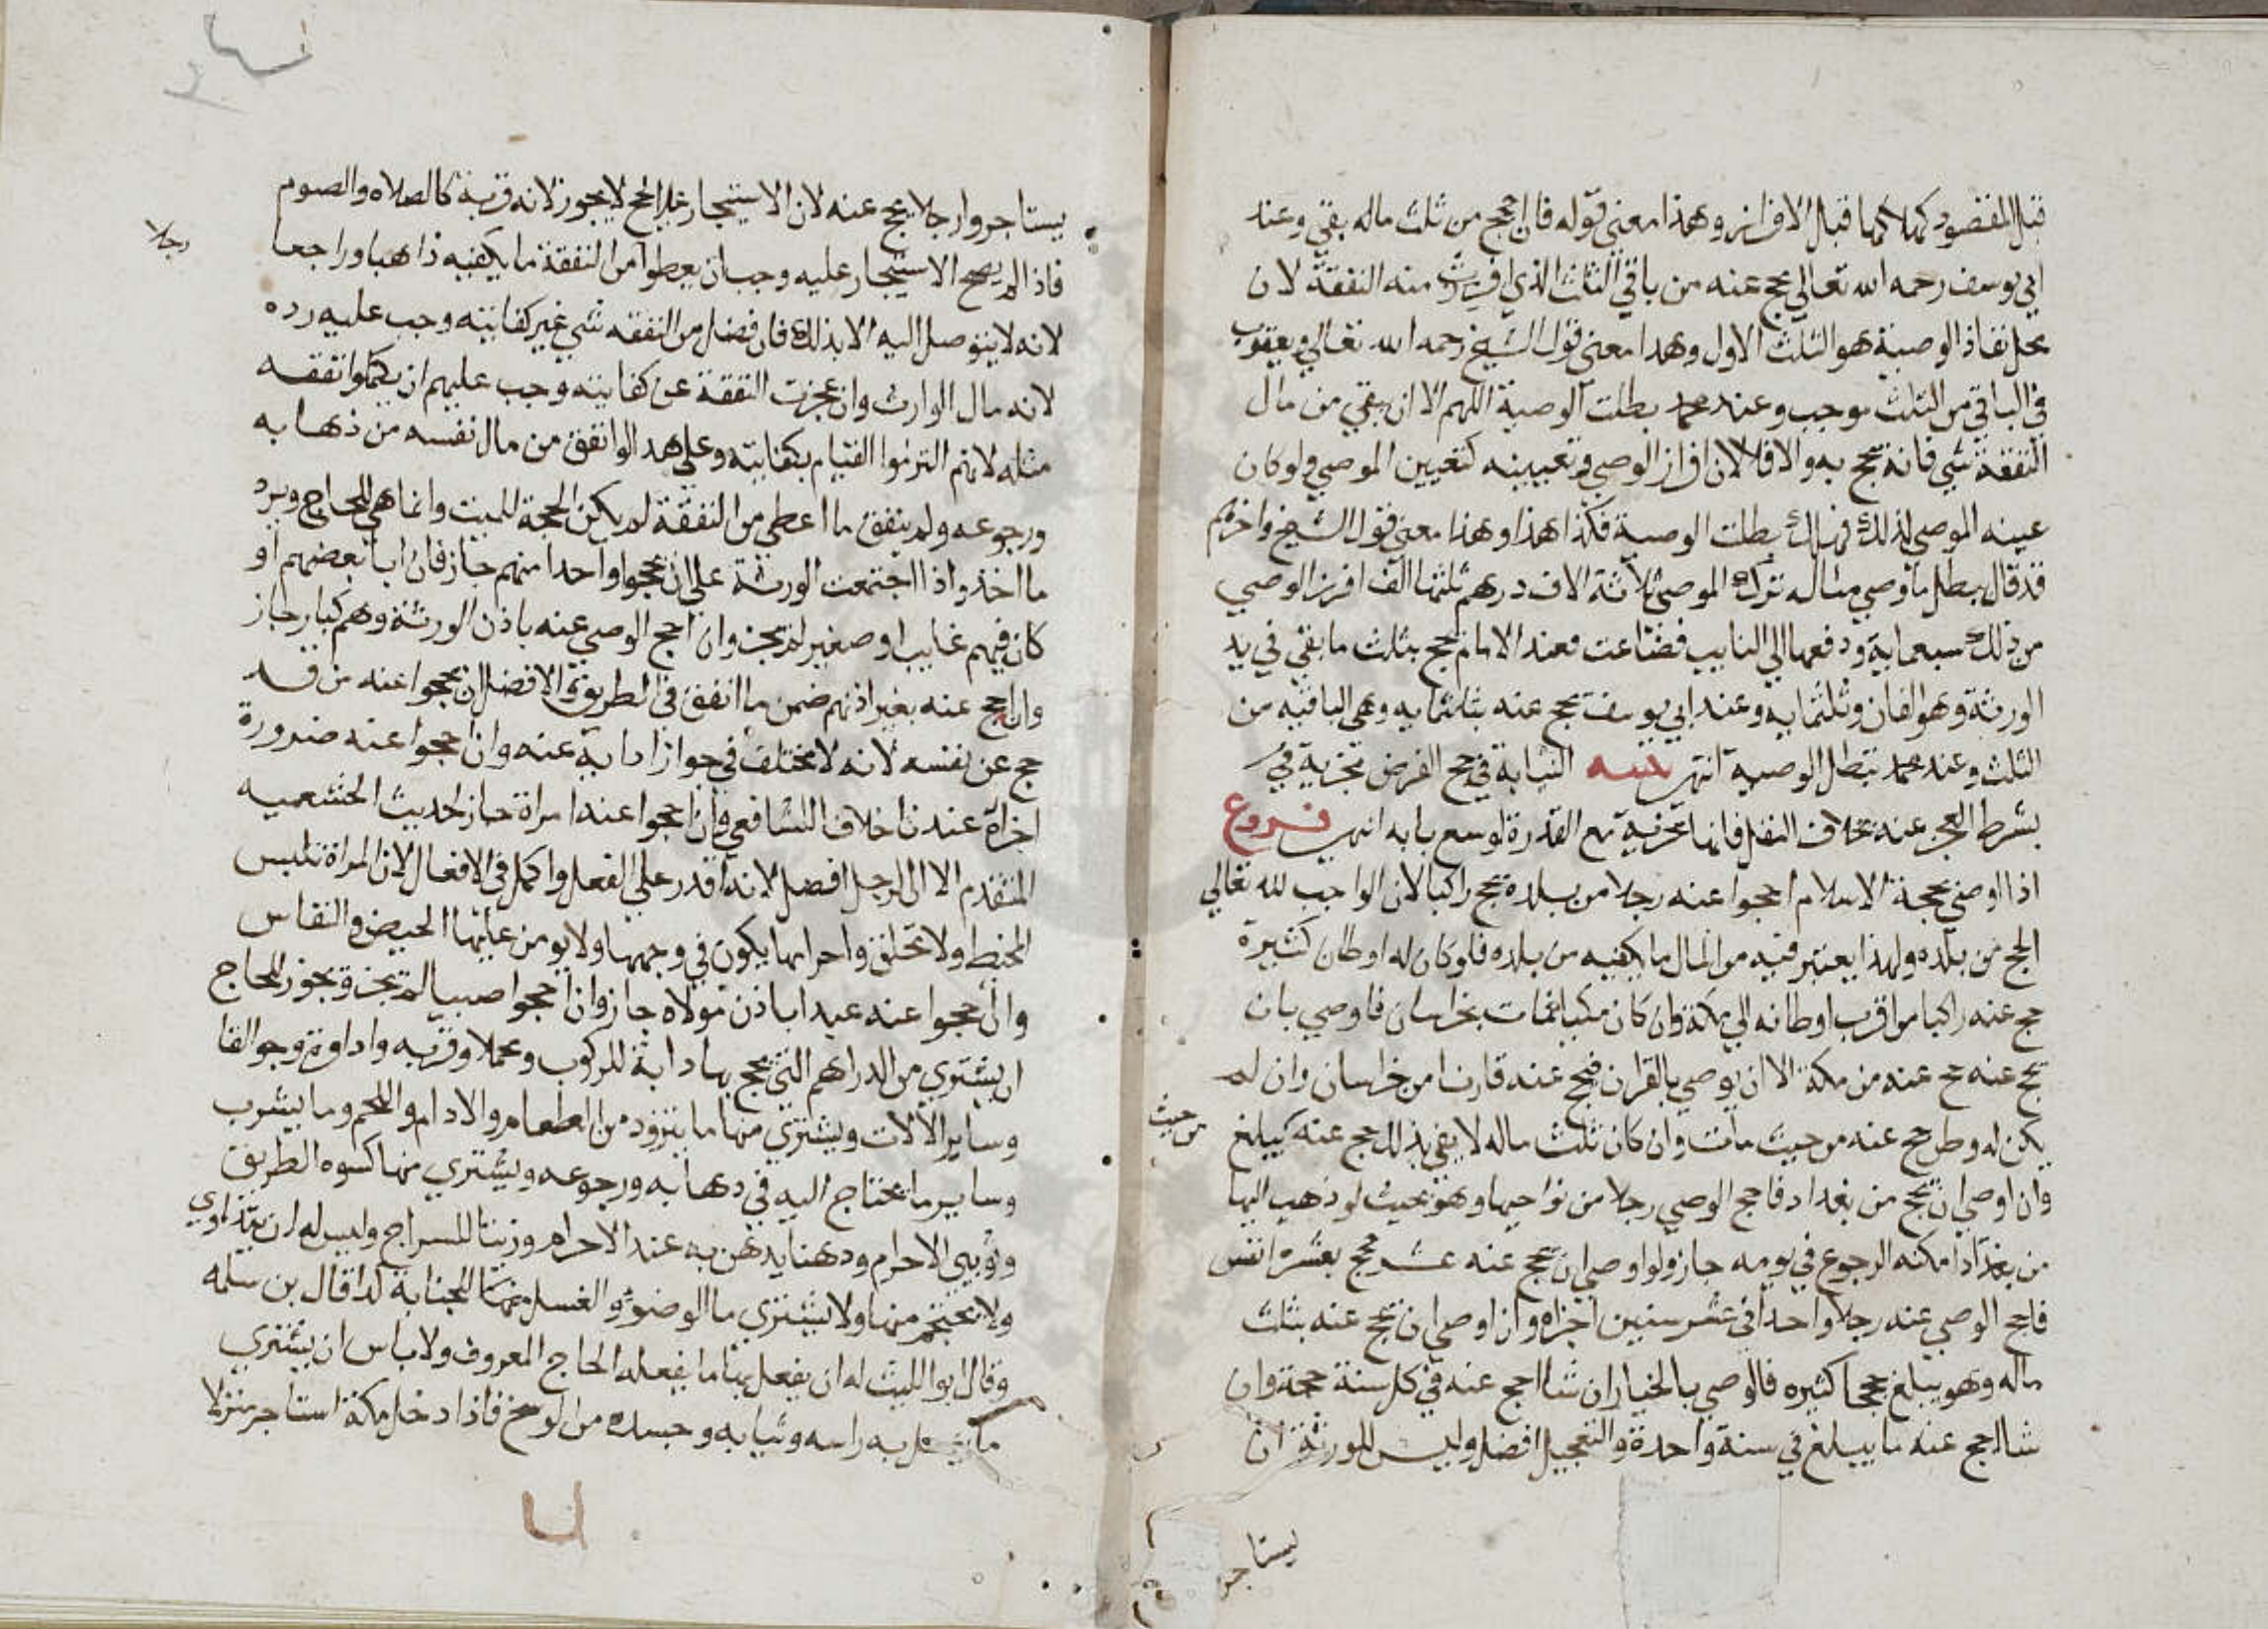 قبل المقصود كهلاكها قبل الافراز وهذا معني قوله فان احجج من ثلث ماله بقي وعند
ابي يوسف رحمه الله تعالي يحج عنه من باقي الثلث الذي افرزت منه النفقة لان
محل نفاذ الوصية هو الثلث الاول وهدا معني قول الشيخ رحمه الله تعالي ويعقوب
في الباقي من الثلث موجب وعند محمد بطلت الوصية اللهم الا ان بقي من مال
النفقة شي فانه يحج به والا فلا لان افراز الوصي وتعيينه كتعيين الموصي ولو كان
عينه الموصي لذلك فهلك بطلت الوصية فكذا هذا وهذا معني قول الشيخ واخرهم
قد قال يبطل ما وصي مثاله ترك الموصي ثلاثة الاف درهم ثلثها الف افرز الوصي
من ذلك سبعماية ودفعها الي النايب فضاعت فعند الامام يحج بثلث ما بقي في يد
الورثة وهو الفان وثلثماية وعند ابي يوسف يحج عنه بثلثماية وهي الباقيه من
الثلث وعند محمد تبطل الوصية انتهى تنبيه النيابة في حج الفرض تجزية في
بشرط العجز عنه بخلاف النفل فانها تجزية مع القدرة لوسع بابه انتهى فروع
اذا اوصي بحجة الاسلام احجوا عنه رجلا من بلده يحج راكبا لان الواجب لله تعالي
الحج من بلده ولهذا يعتبر فيه من المال ما يكفيه من بلده فلو كان له اوطان كثيرة
حج عنه راكبا من اقرب اوطانه الي مكة وان كان مكيا فمات بخراسان فاوصي بان
يحج عنه حج عنه من مكة الا ان يوصي بالقران فيحج عنه قارنا من خراسان وان لم
يكن له وطن حج عنه من حيث مات وان كان ثلث ماله لا يفي بذلك حج عنه كيبلغ
من حيث
وان اوصي ان يحج من بغداد فاحج الوصي رجلا من نواحيها وهو بحيث لو ذهب اليها
من بغداد امكنه الرجوع في يومه جاز ولو اوصي ان يحج عنه عشر حجج بعشرة انفس
فاحج الوصي عنه رجلا واحدا في عشر سنين اجزاه وان اوصي ان يحج عنه بثلث
ماله وهو يبلغ حججا كثيره فالوصي بالخيار ان شا احج عنه في كل سنة حجة وان
شا احج عنه ما يبلغ في سنة واحدة والتعجيل افضل وليس للورثة ان
يستاجر
يستاجروا رجلا يحج عنه لان الاستيجار علي الحج لا يجوز لانه قربة كالصلاه والصوم
رجلا
فاذا لم يصح الاستيجار عليه وجب ان يعطوا من النفقة ما يكفيه ذاهبا وراجعا
لانه لا يتوصل اليه الا بذلك فان فضل من النفقه شي غير كفايته وجب عليه رده
لانه مال الوارث وان عجزت النفقة عن كفايته وجب عليهم ان يكملوا نفقه
مثله لانهم التزموا القيام بكفايته وعلي هدا لو انفق من مال نفسه من ذهابه
ورجوعه ولم ينفق ما اعطي من النفقة لم يكن الحجة للميت وانما هي للحاج ويرد
ما اخذ واذا اجتمعت الورثة علي ان يحجوا واحدا منهم جاز فان ابا بعضهم او
كان فيهم غايب او صغير لم يجز وان احج الوصي عنه باذن الورثة وهم كبار جاز
وان احج عنه بغير اذنهم ضمن ما انفق في الطريق والافضل ان يحجوا عنه من قد
حج عن نفسه لانه لا يختلف في جواز ادايه عنه وان احجوا عنه صرورة
اجزاه عندنا خلافا للشافعي وان احجوا عنه امراة جاز لحديث الخثعميه
المتقدم الا ان الرجل افضل لانه اقدر علي الفعل واكمل في الافعال لان المراة تلبس
المخيط ولا تحلق واحرامها يكون في وجهها ولا يومن عليها الحيض والنفاس
وان احجوا عنه عبدا باذن مولاه جاز وان احجوا صبيا لم يجز ويجوز للحاج
ان يشتري من الدراهم التي يحج بها دابة للركوب ومحملا وقربه واداوة وجوالقا
وساير الالات ويشتري منها ما يتزود من الطعام والادام واللحم وما يشرب
وساير ما يحتاج اليه في دهابه ورجوعه ويشتري منها كسوه الطريق
وثوبي الاحرام ودهنا يدهن به عند الاحرام وزيتا للسراج وليس له ان يتداوي
ولا يحتجم منها ولا يشتري ما الوضوء والغسل منها للجنابة كدا قال بن سلمه
وقال ابو الليث له ان يفعل منها ما يفعله الحاج المعروف ولا باس ان يشتري
ما يغسل به راسه وثيابه وجسده من الوسخ فاذا دخل مكة استاجر منزلا